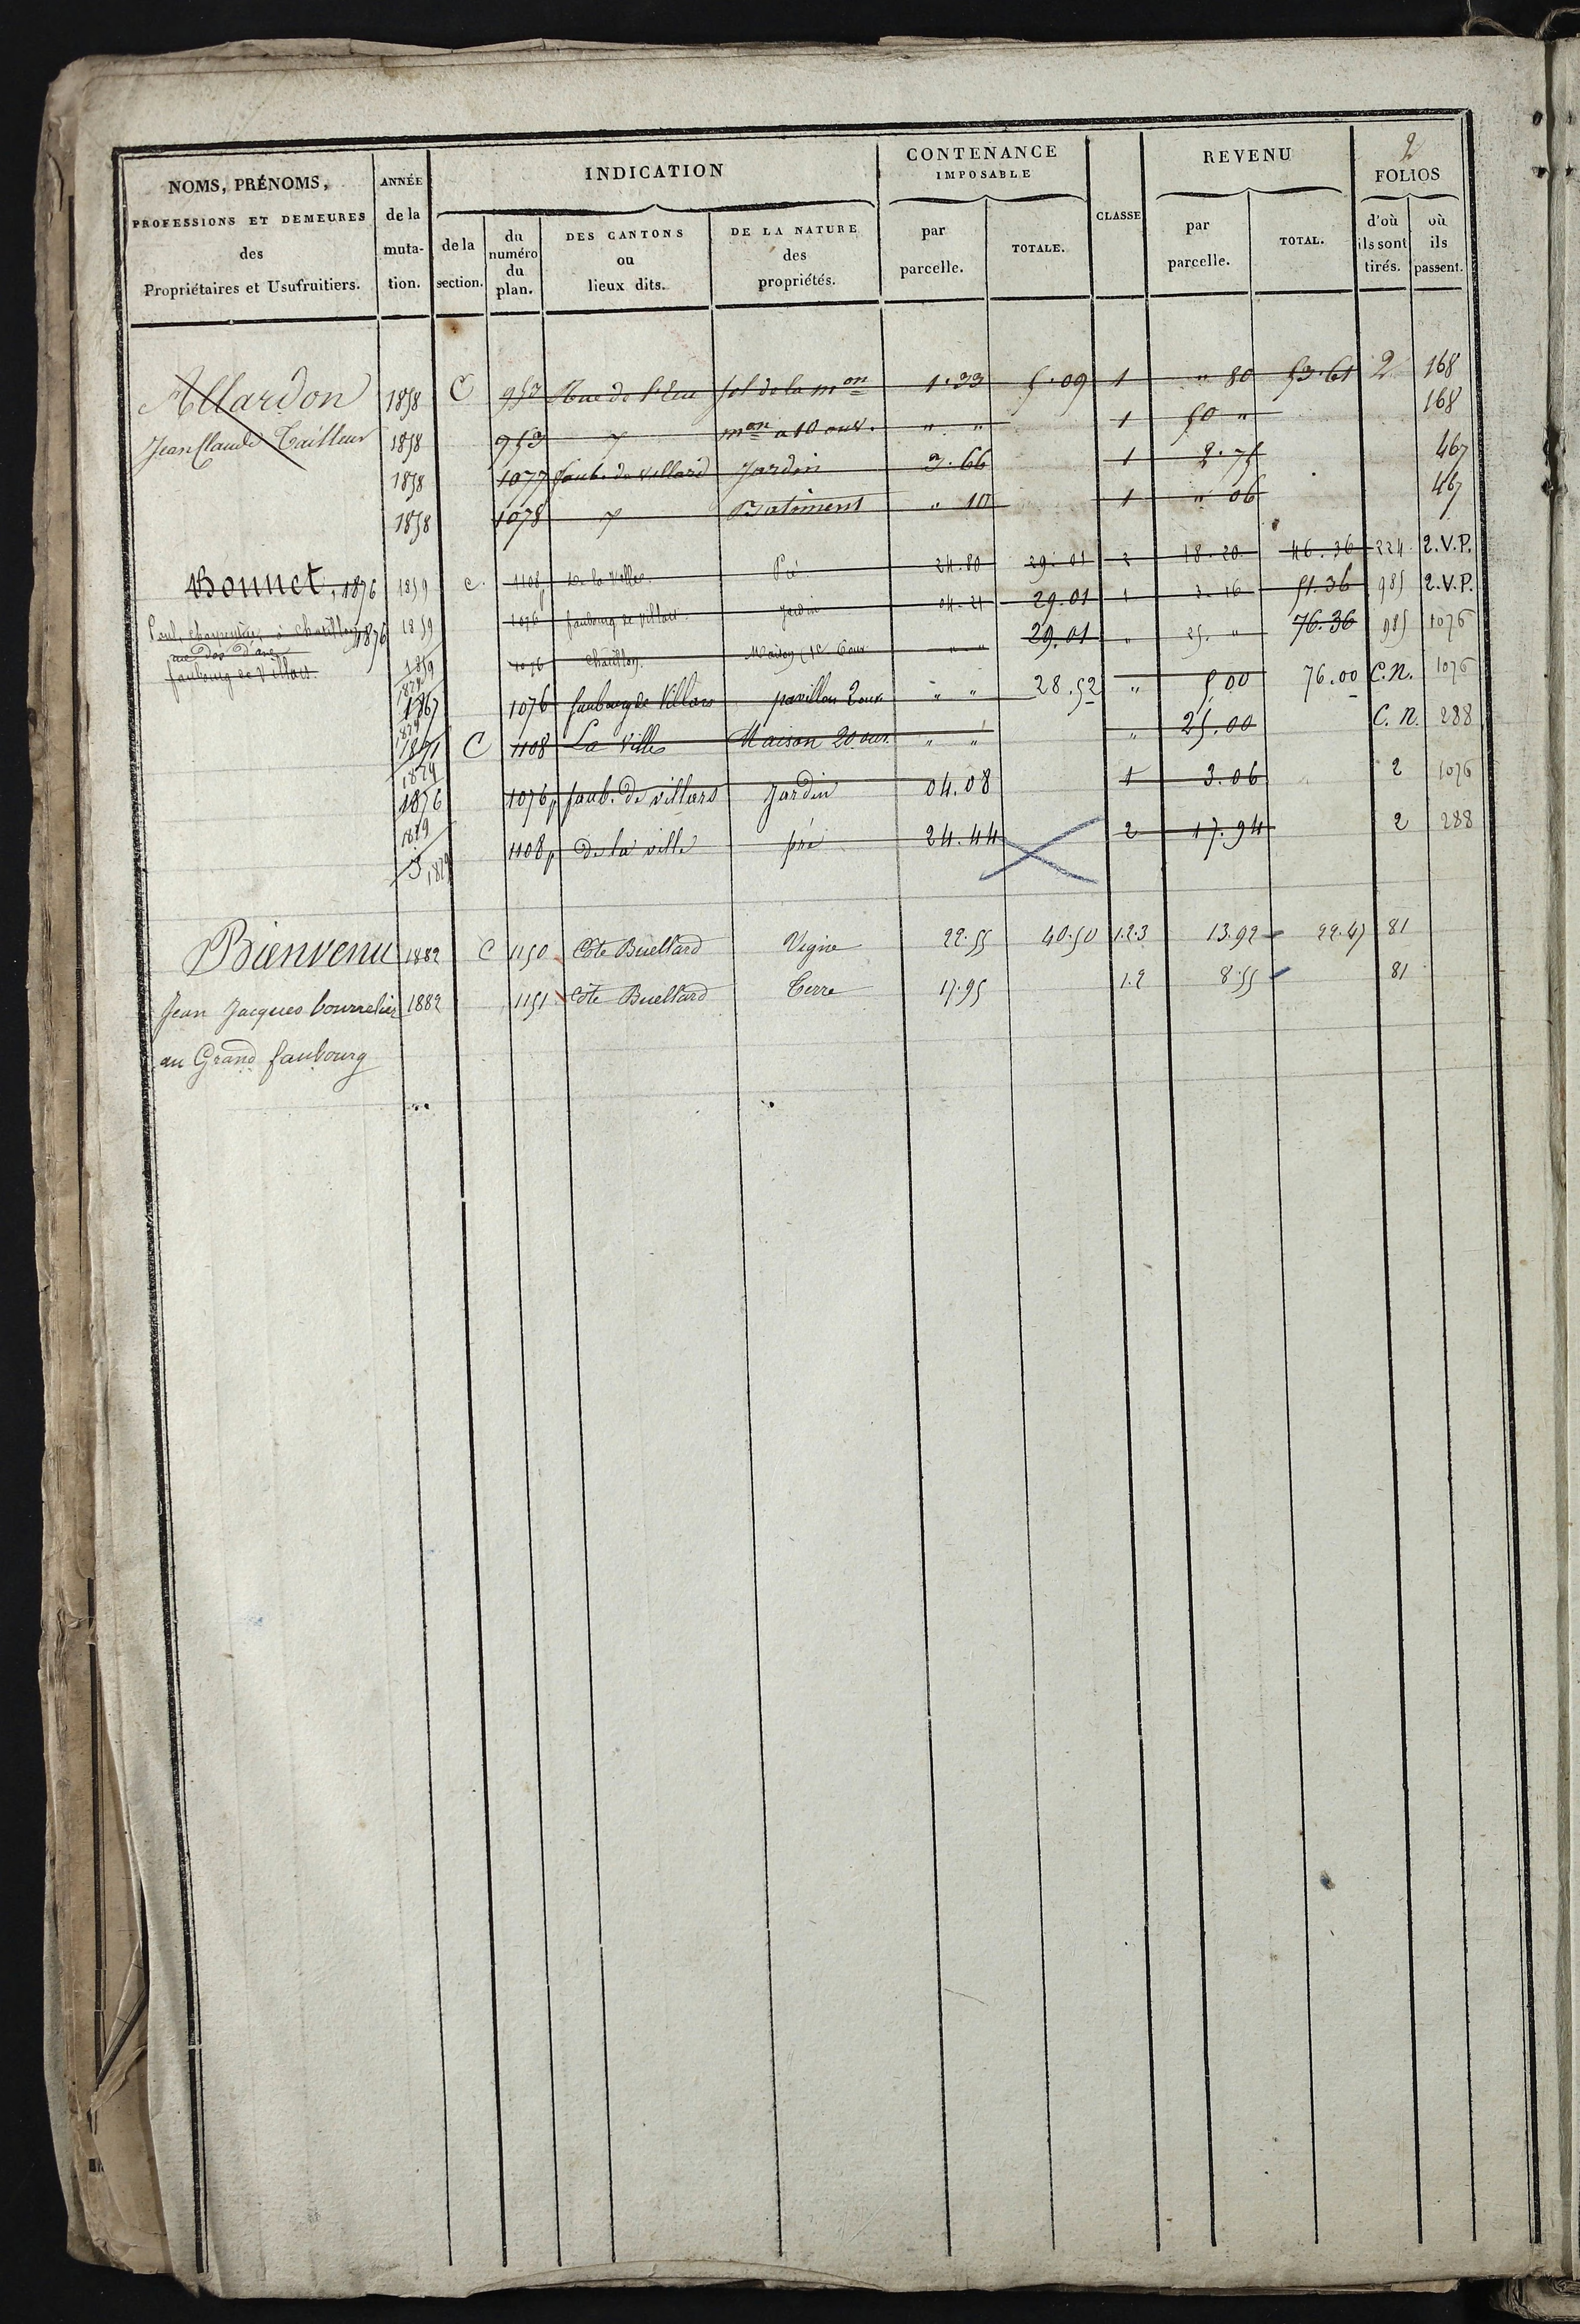 2
NOMS, PRÉNOMS, PROFESSIONS ET DEMEURES des Propriétaires et Usufruitiers.
ANNÉE de la muta- tion.
INDICATION
de la section.
du numéro du plan.
DES CANTONS ou lieux dits.
DE LA NATURE des propriétés.
CONTENANCE IMPOSABLE
par parcelle.
TOTALE.
CLASSE
REVENU
par parcelle.
TOTAL.
FOLIOS
d'où ils sont tirés.
où ils passent.
Allardon 1858 C 953 Rue de sol de la mon 1.33 5.09 1 " 80 53.61 2 168
Jean Claude Tailleur 1858 953 mon a 10 ouv. " " 1 50 " 168
1858 1077 faub. de Villard Jardin 3.66 1 2.75 467
1858 1078 Batiment " 10 1 " 06 467
Bonnet, 1876 1859 C 1108 de la Ville Pré 24.80 29.01 2 18.20 46.36 224 2.V.P.
Paul, charpentier à Chatillon 1876 1859 1076 faubourg de Villars Jardin 04.21 29.01 1 3.16 51.36 985 2.V.P.
rue dos d'ane
faubourg de Villars.
1859 1076 Chatillon Maison " " 29.01 " 25. " 76.36 985 1076
1879
1867 1076 faubourg de Villars pavillon 2 ouv " " 28.52 " 5.00 76.00 C.N. 1076
1879
1871 C 1108 La Ville Maison 20 ouv. " " " 25.00 C.N. 288
1879
1876 1076p faub. de villars Jardin 04.08 1 3.06 2 1076
1879
1108p de la ville pré 24.44 2 17.94 2 288
1879
Bienvenu 1882 C 1150 Côte Buellard Vigne 22.55 40.50 1.2.3 13.92 22.47 81
Jean Jacques bourrelier 1882 1151 Côte Buellard Terre 17.95 1.2 8.55 81
au Grand faubourg